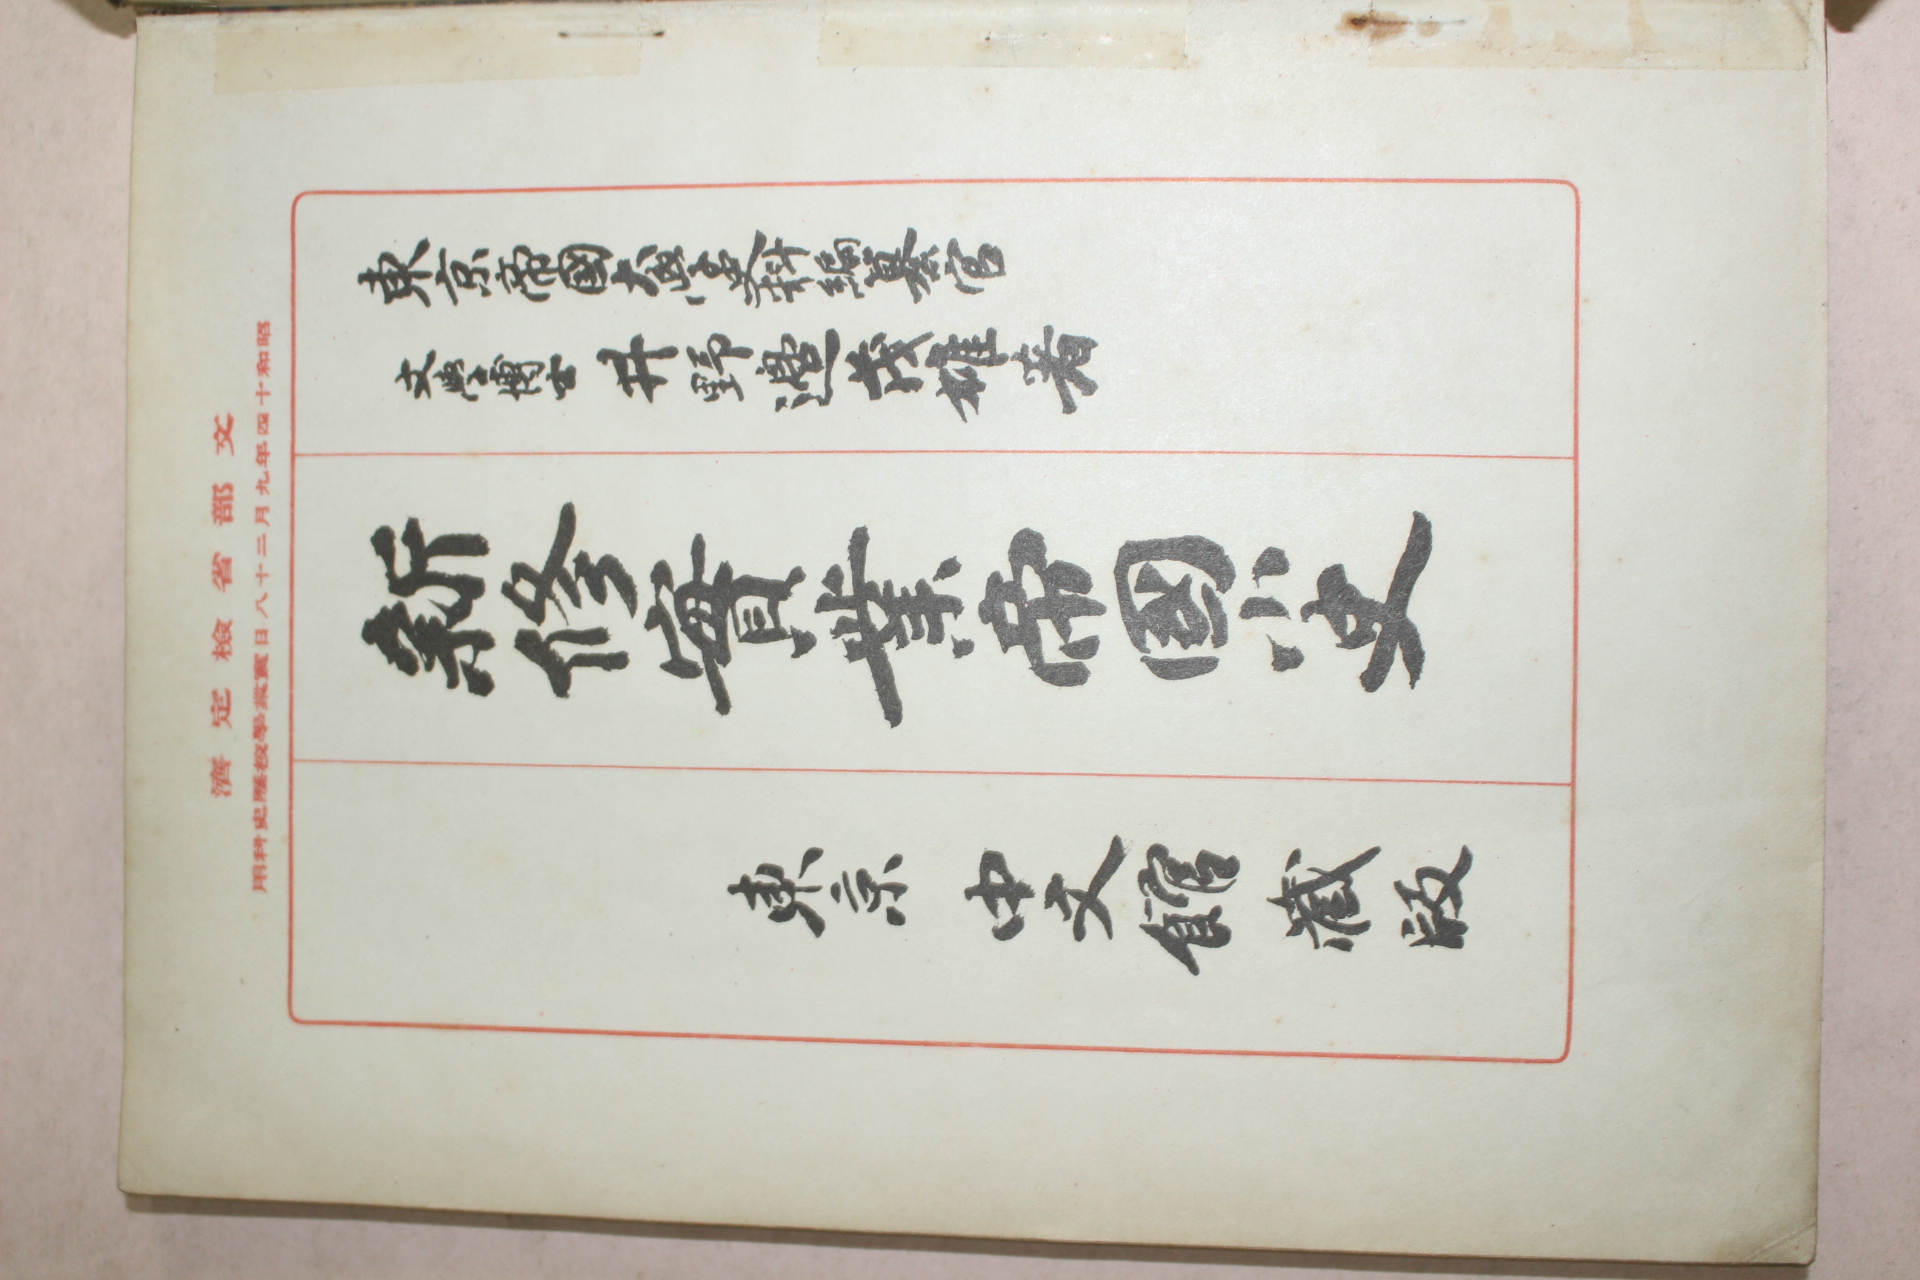 文部省檢定濟
昭和十四年九月二十八日實業學校歷史科用
東京帝國大學史料編纂官
文學博士 井野邊茂雄著
新修實業帝國小史
東京 中文館藏版